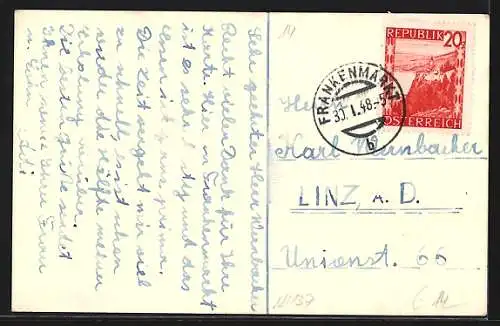 Sehr geehrter Herr Wernbacher
Recht vielen Dank für Ihre
Karte. Hier in Frankenmarkt
ist es sehr lustig und das
Essen ist ganz prima.
Die Zeit geht mir viel
zu schnell, es ist schon
wieder die Hälfte meiner
Erholung vorüber.
Die herzlichsten
Ihnen meine Ihre Frau
u.
REPUBLIK 20
ÖSTERREICH
FRANKENMARKT
30. I. 48
b
Herrn
Karl Wernbacher
LINZ, a. D.
Unionst. 66
14